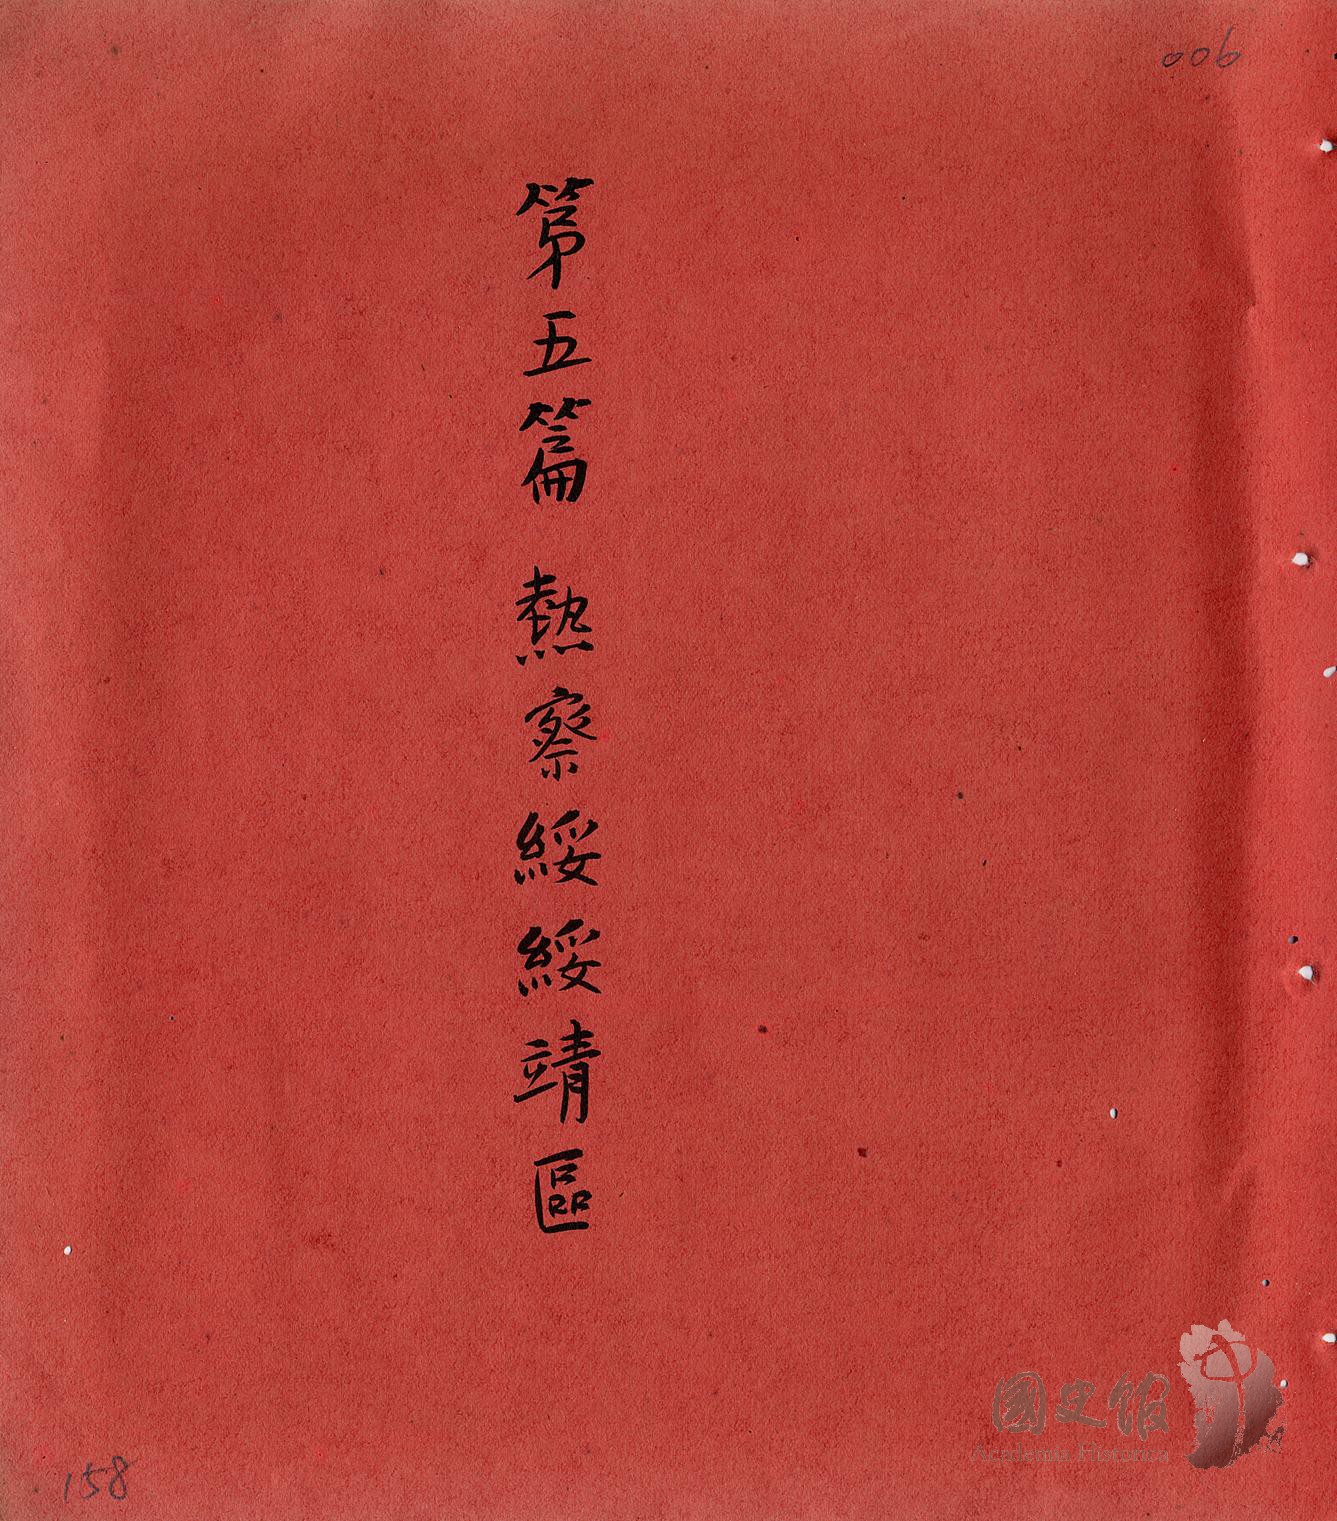 006
第五篇 熱察綏綏靖區
158
國史館
Academia Historica